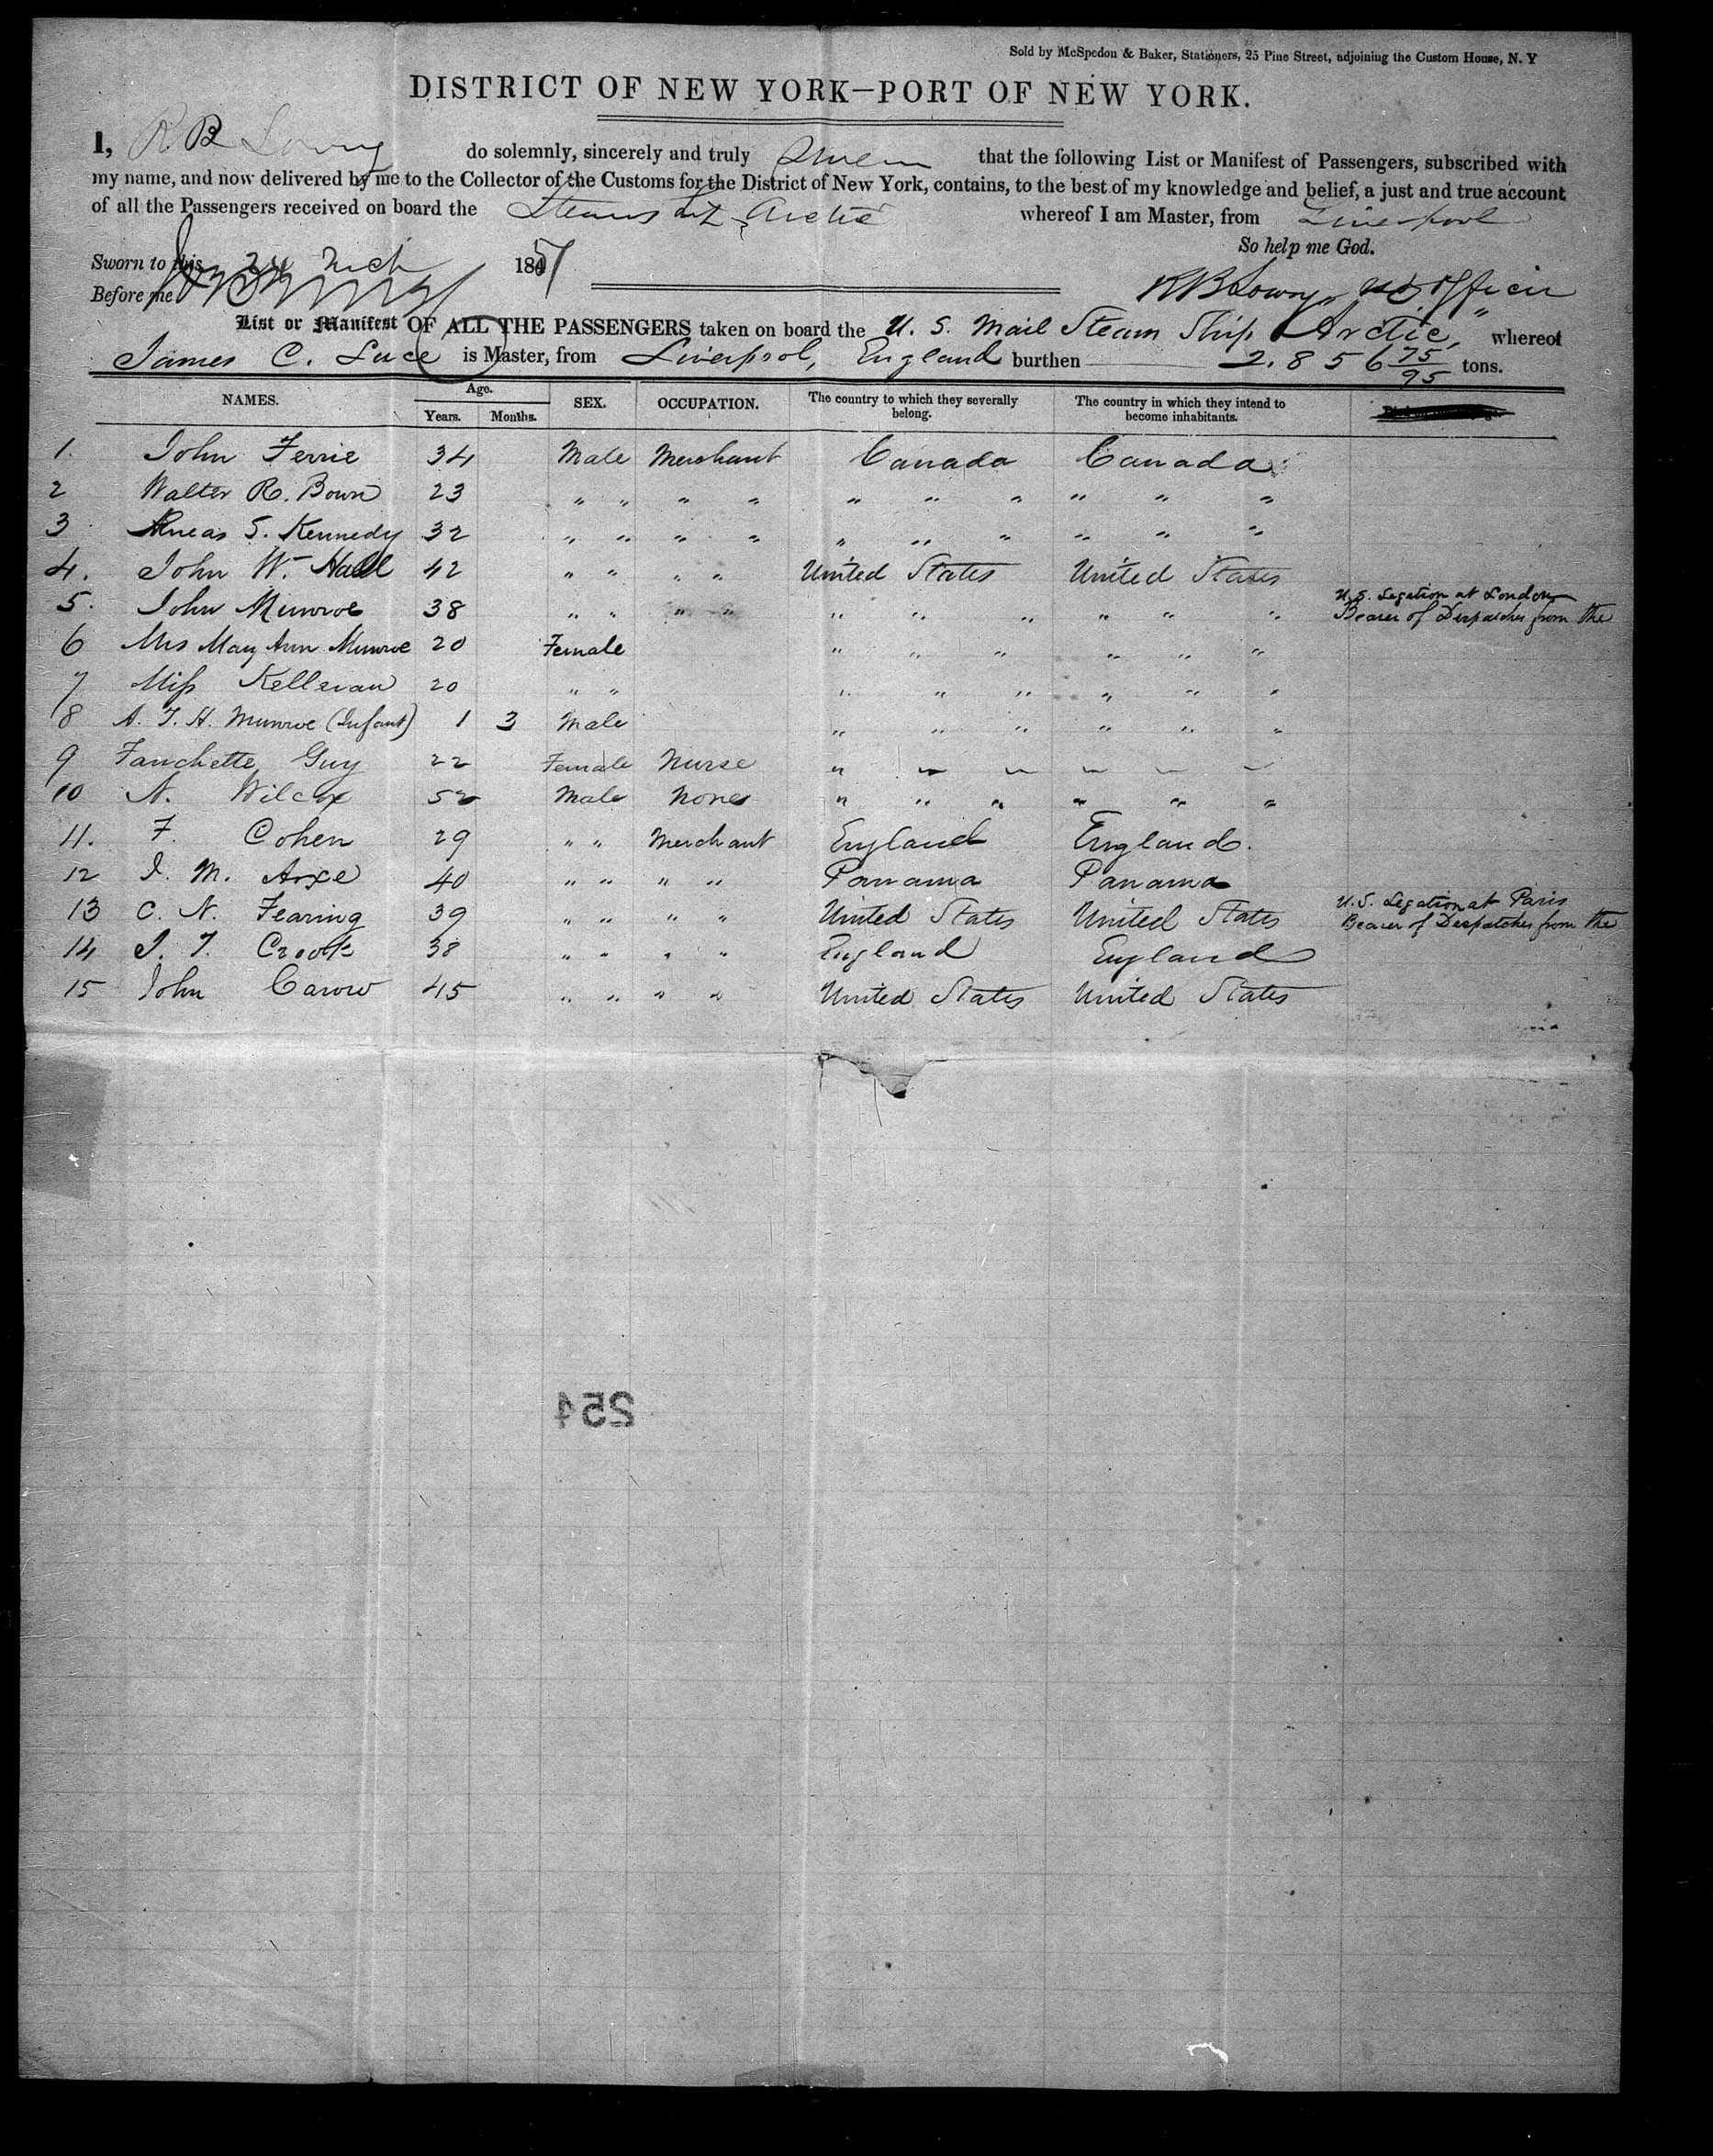 Sold by McSpedon & Baker, Stationers, 25 Pine Street, adjoining the Custom House, N. Y
DISTRICT OF NEW YORK—PORT OF NEW YORK.
I, R B Lowry do solemnly, sincerely and truly swear that the following List or Manifest of Passengers, subscribed with
my name, and now delivered by me to the Collector of the Customs for the District of New York, contains, to the best of my knowledge and belief, a just and true account
of all the Passengers received on board the Steams Arctic whereof I am Master, from Liverpool
So help me God.
Sworn to this 24 Mch 1851
Before me
R B Lowry, Officer
List or Manifest OF ALL THE PASSENGERS taken on board the U. S. Mail Steam Ship "Arctic," whereof
James C. Luce is Master, from Liverpool, England burthen 2.856 75/95 tons.
NAMES. Age. Years. Months. SEX. OCCUPATION. The country to which they severally belong. The country in which they intend to become inhabitants.
1. John Ferrie 34 Male Merchant Canada Canada
2 Walter R. Bown 23 " " " " " " " " " "
3 Aneas S. Kennedy 32 " " " " " " " " " "
4. John W. Hall 42 " " " " United States United States
U.S. Legation at London
5. John Munroe 38 " " " " " " " " " " Bearer of Despatches from the
6 Mrs Mary Ann Munroe 20 Female " " " " " "
7 Miss Kellevan 20 " " " " " " " "
8 A. T. H. Munroe (Infant) 1 3 Male " " " " " "
9 Fanchette Guy 22 Female Nurse " " " " " "
10 N. Wilcox 52 Male None " " " " " "
11. F. Cohen 29 " " Merchant England England.
12 I. M. Arxe 40 " " " " Panama Panama
U.S. Legation at Paris
13 C. N. Fearing 39 " " " " United States United States Bearer of Despatches from the
14 I. T. Crook 38 " " " " England England
15 John Carow 45 " " " " United States United States
254